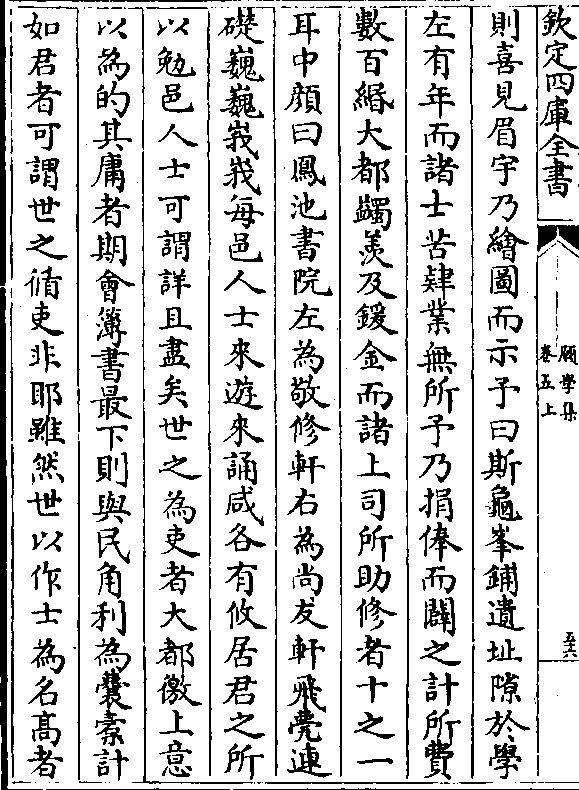 欽定四庫全書
願學集
卷五上
五十六
則喜見眉宇乃繪圖而示予曰斯龜峯鋪遺址隙於學
左有年而諸士苦肄業無所予乃捐俸而闢之計所費
數百緡大都蠲羨及鍰金而諸上司所助修者十之一
耳中顔曰鳳池書院左為敬修軒右為尚友軒飛甍連
礎巍巍峩峩每邑人士來遊來誦咸各有攸居君之所
以勉邑人士可謂詳且盡矣世之為吏者大都徼上意
以為的其庸者期會簿書最下則與民角利為囊橐計
如君者可謂世之循吏非耶雖然世以作士為名髙者